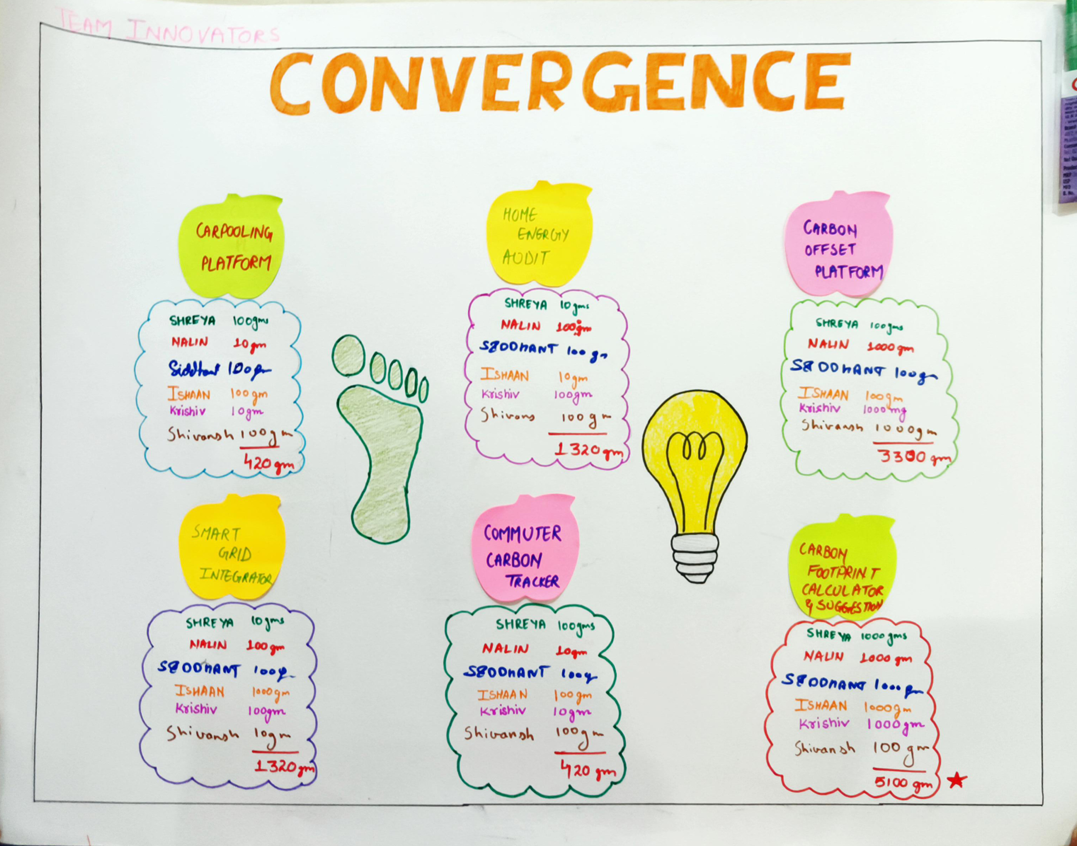 TEAM INNOVATORS
CONVERGENCE
CARPOOLING
PLATFORM
SHREYA 100gms
NALIN 10gm
Siddhant 100gm
ISHAAN 100gm
Krishiv 10gm
Shivansh 100gm
420gm
HOME
ENERGY
AUDIT
SHREYA 10gms
NALIN 100gm
SIDDHANT 100gm
ISHAAN 10gm
Krishiv 100gm
Shivans 100gm
1320gm
CARBON
OFFSET
PLATFORM
SHREYA 100gms
NALIN 1000gm
SIDDHANT 100gm
ISHAAN 100gm
Krishiv 1000mg
Shivansh 1000gm
3300gm
SMART
GRID
INTEGRATOR
SHREYA 10gms
NALIN 100gm
SIDDHANT 100g
ISHAAN 1000gm
Krishiv 100gm
Shivansh 10gm
1320gm
COMMUTER
CARBON
TRACKER
SHREYA 100gms
NALIN 10gm
SIDDHANT 100g
ISHAAN 100gm
Krishiv 10gm
Shivansh 100gm
420gm
CARBON
FOOTPRINT
CALCULATOR
& SUGGESTION
SHREYA 1000gms
NALIN 1000gm
SIDDHANT 1000gm
ISHAAN 1000gm
Krishiv 1000gm
Shivansh 100gm
5100gm